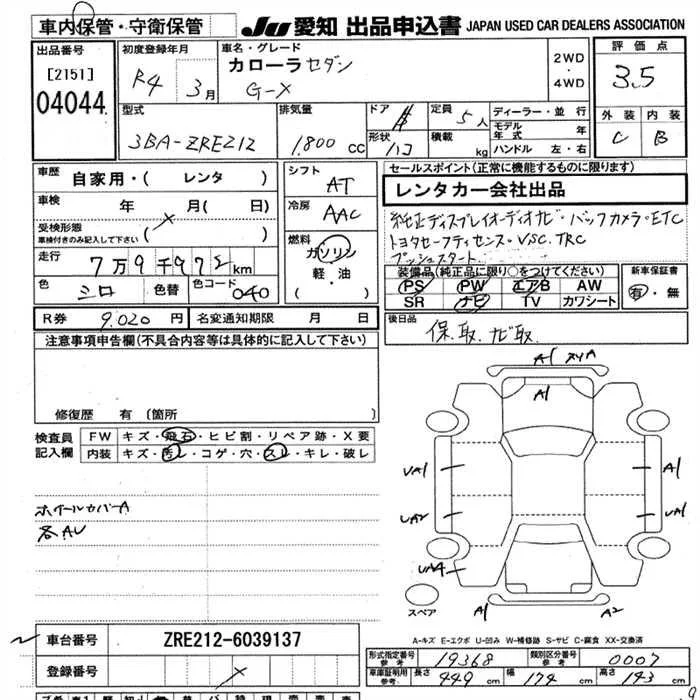 車内保管・守衛保管
JU 愛知 出品申込書 JAPAN USED CAR DEALERS ASSOCIATION
出品番号
[2151]
04044
初度登録年月
R4 3月
車名・グレード
カローラセダン
G-X
2WD
・
4WD
評価点
3.5
型式
3BA-ZRE212
排気量
1,800 CC
ドア
4
形状
ハコ
定員
5人
積載
kg
ディーラー・並行
モデル年式 年
ハンドル 左・右
外装 内装
C B
車歴
自家用・( レンタ )
車検
年 月( 日)
受検形態
車検付きのみ記入して下さい ( )
走行
7万9千972km
色
シロ
色替
色コード
040
シフト
AT
冷房
AAC
燃料
ガソリン
軽・油
( )
セールスポイント(正常に機能するものに限ります)
レンタカー会社出品
純正ディスプレイオーディオナビ・バックカメラ・ETC
トヨタセーフティセンス・VSC.TRC
プッシュスタート
装備品(純正品に限り○をつけてください)
PS PW エアB AW
SR ナビ TV カワシート
新車保証書
有・無
R券 9.020円 名変通知期限 月 日
後日品
保.取.ナビ取
注意事項申告欄(不具合内容等は具体的に記入して下さい)
修復歴 有 〔箇所 〕
検査員記入欄
FW キズ・飛石・ヒビ割・リペア跡・X要
内装 キズ・汚レ・コゲ・穴・スレ・キレ・破レ
ホイールカバーA
各AU
A1
A1
UA1
UA2
UA1
A1
A2
スペア
A-キズ E-エクボ U-凹み W-補修跡 S-サビ C-腐食 XX-交換済
車台番号 ZRE212-6039137
登録番号
形式指定番号 参考 19368
類別区分番号 参考 0007
車庫証明用 参考 長さ 449 cm 幅 174 cm 高さ 143 cm